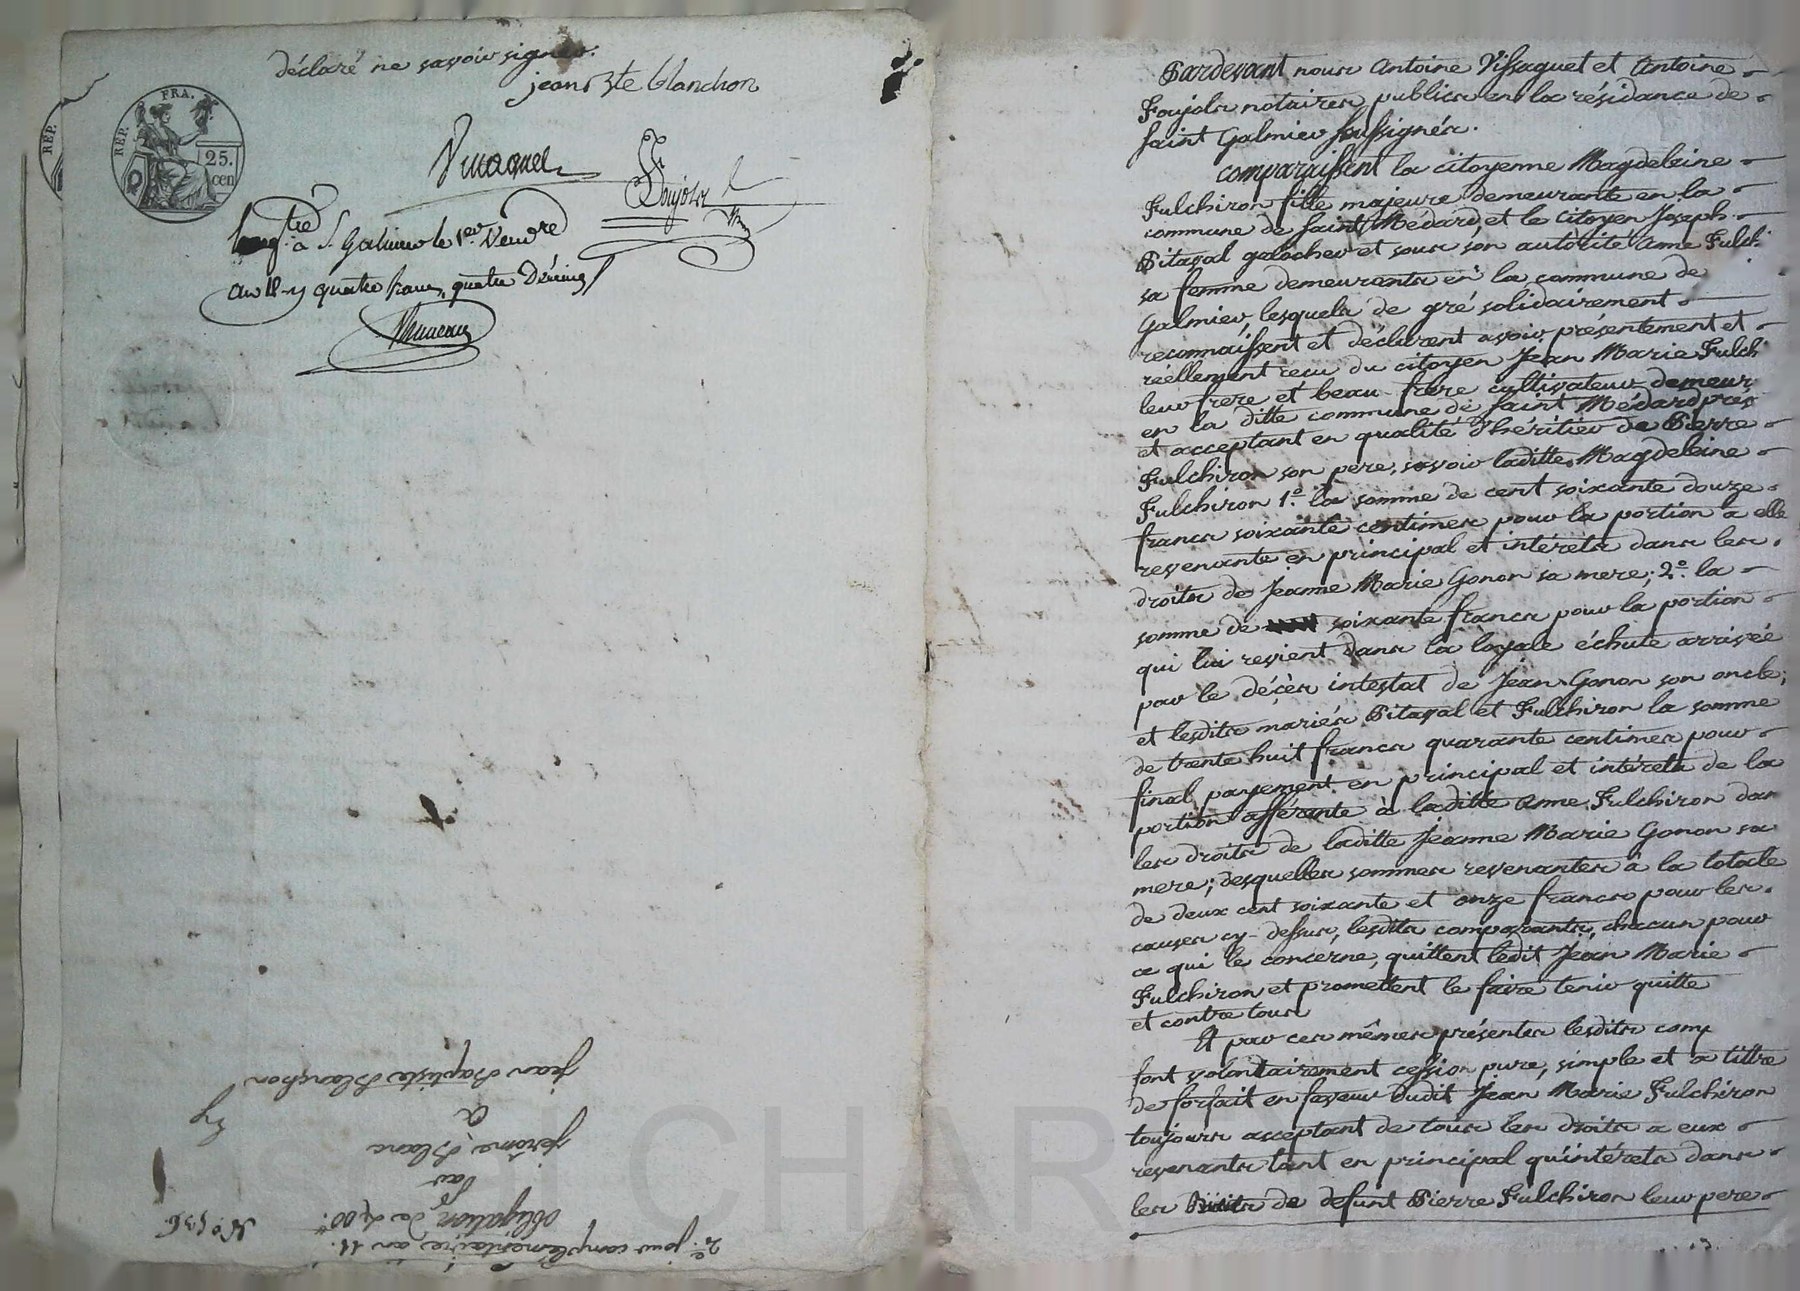 déclaré ne savoir signer.
jean Bte blanchon
REP. FRA.
25.
cen
REP.
Vissaguet
Foujols
Enregtré à St Galmier le 1er Vendre
an 12 quatre francs, quatre Décimes
jean Baptiste Blanchon
a
jérome Blanc
par
obligation de 400tt
N° 536
2e jour complémentaire an 11.
Pardevant nous Antoine Vissaguet et Antoine
Foujols notaires publics en la résidance de
saint Galmier soussignés.
comparaissent la citoyenne Magdeleine
Fulchiron fille majeure demeurante en la
commune de saint Médard, et le citoyen Joseph
Pitaval galocher et sous son autorité Anne Fulch
sa femme demeurants en la commune de
Galmier lesquels de gré solidairement
reconnaissent et déclarent avoir présentement et
réellement reçu du citoyen Jean Marie Fulch
leur frere et beau frere cultivateur demeur
en la ditte commune de saint Médard prés
et acceptant en qualité d'héritier de Pierre
Fulchiron son pere, savoir laditte Magdeleine
Fulchiron 1°. la somme de cent soixante douze
francs soixante centimes pour la portion a elle
revenante en principal et intérets dans les
droits de Jeanne Marie Gonon sa mere; 2°. la
somme de soixante francs pour la portion
qui lui revient dans la loyale échute arrivée
par le décès intestat de Jean Gonon son oncle;
et lesdits mariés Pitaval et Fulchiron la somme
de trente huit francs quarante centimes pour
final payement en principal et intérets de la
portion afférante à laditte Anne Fulchiron dan
les droits de laditte Jeanne Marie Gonon sa
mere; desquelles sommes revenantes à la totale
de deux cent soixante et onze francs pour les
causes cy-dessus, lesdits comparants, chacun pour
ce qui le concerne, quittent ledit Jean Marie
Fulchiron et promettent le faire tenir quitte
et contre tous
Et par ces mêmes présentes lesdits comp
font volontairement cession pure, simple et a tittre
de forfait en faveur dudit Jean Marie Fulchiron
toujours acceptant de tous les droits a eux
revenants tant en principal qu'intérets dans
les Droits de defunt Pierre Fulchiron leur pere
CHAR